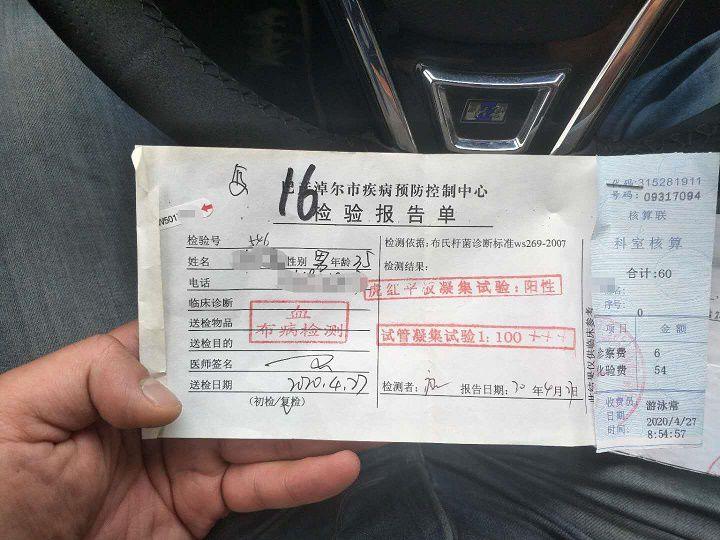 16
巴彦淖尔市疾病预防控制中心
检验报告单
W501
检验号 546
姓名 性别 男 年龄 35
电话
临床诊断
送检物品
送检目的
血
布病检测
医师签名
送检日期 2020.4.27
(初检/复检)
检测依据:布氏杆菌诊断标准ws269-2007
检测结果:
虎红平板凝集试验:阳性
试管凝集试验1:100+++
检测者: 报告日期:20年4月27日
此结果仅供临床参考
代码:315281911
号码:09317094
核算联
科室核算
合计:60
姓名:
序号: 0
项目 金额
诊察费 6
化验费 54
收费员: 游泳常
日期: 2020/4/27
时间: 8:54:57